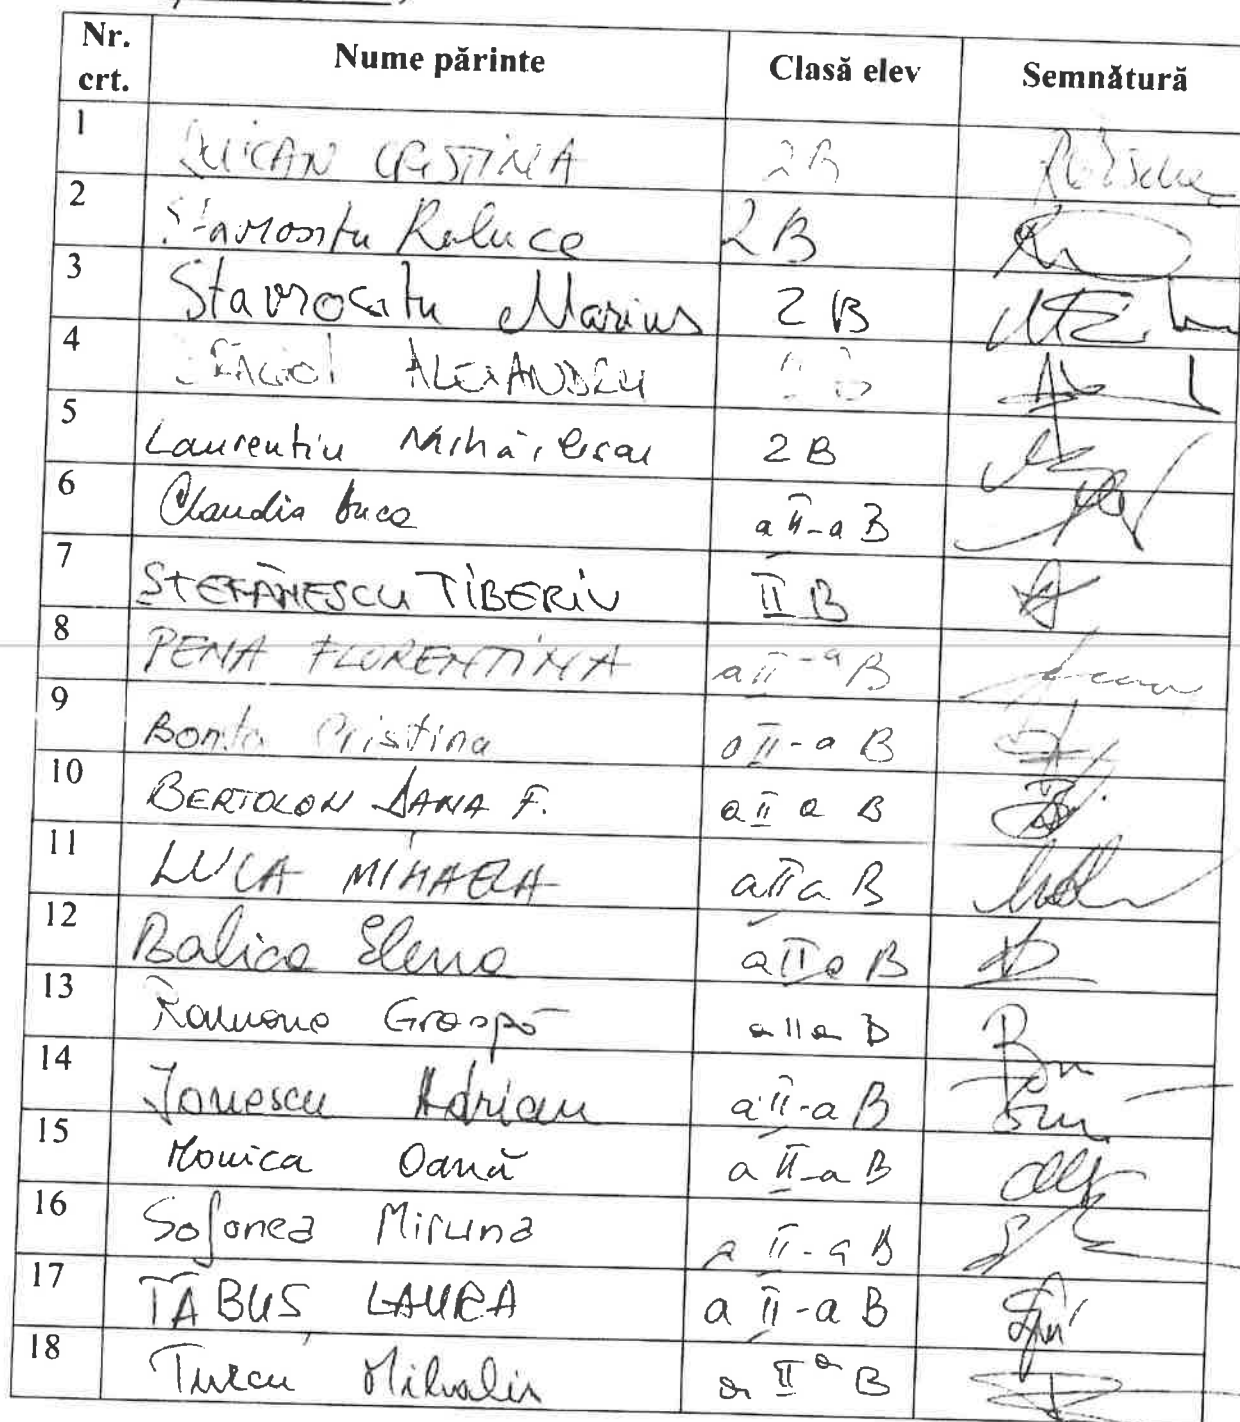 Nr. crt. Nume părinte Clasă elev Semnătură
1 CRISTINA 2B
2 Stavrositu Raluca 2B
3 Stavrositu Marius 2 B
4 ALEXANDRU
5 Laurentiu Mihăilescu 2 B
6 Claudia a II-a B
7 ȘTEFĂNESCU TIBERIU II B
8 PENA FLORENTINA a II-a B
9 Cristina a II-a B
10 BERTOLON DANA F. a II a B
11 LUCA MIHAELA a II a B
12 Balica Elena a II a B
13 Ramona Groapă a II a B
14 Ionescu Adrian a II-a B
15 Monica Oană a II-a B
16 Sofonea Miruna a II-a B
17 TĂBUȘ LAURA a II-a B
18 Turcu Mihalin a II a B